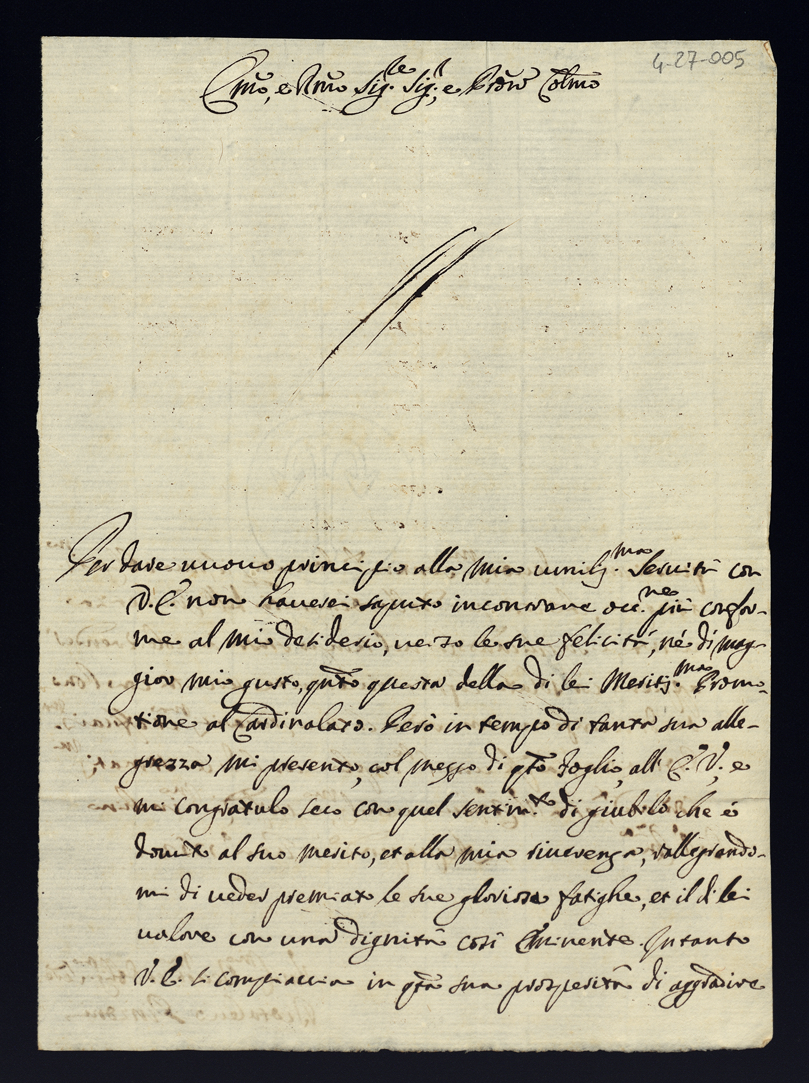 4-27-005
Emo, e Rmo Sigre Sigr, e Pron Colmo
Per dare nuouo principio alla mia umiliss.ma Seruitù con
V.E. non hauerei saputo incontrare occ.ne più confor-
me al mio desiderio, uerso le sue felicità, né di mag-
gior mio gusto, qnto questa della di lei Meritiss.ma Promo-
tione al Cardinalato. Però in tempo di tanta sua alle-
grezza mi presento, col mezzo di qto foglio, all' E.V., e
mi congratulo seco con quel sentim.to di giubilo che è
douuto al suo merito, et alla mia riuerenza, rallegrando-
mi di ueder premiate le sue gloriose fatighe, et il di lei
ualore con una dignità così Eminente. Intanto
V.E. si compiaccia in qta sua prosperità di aggradire